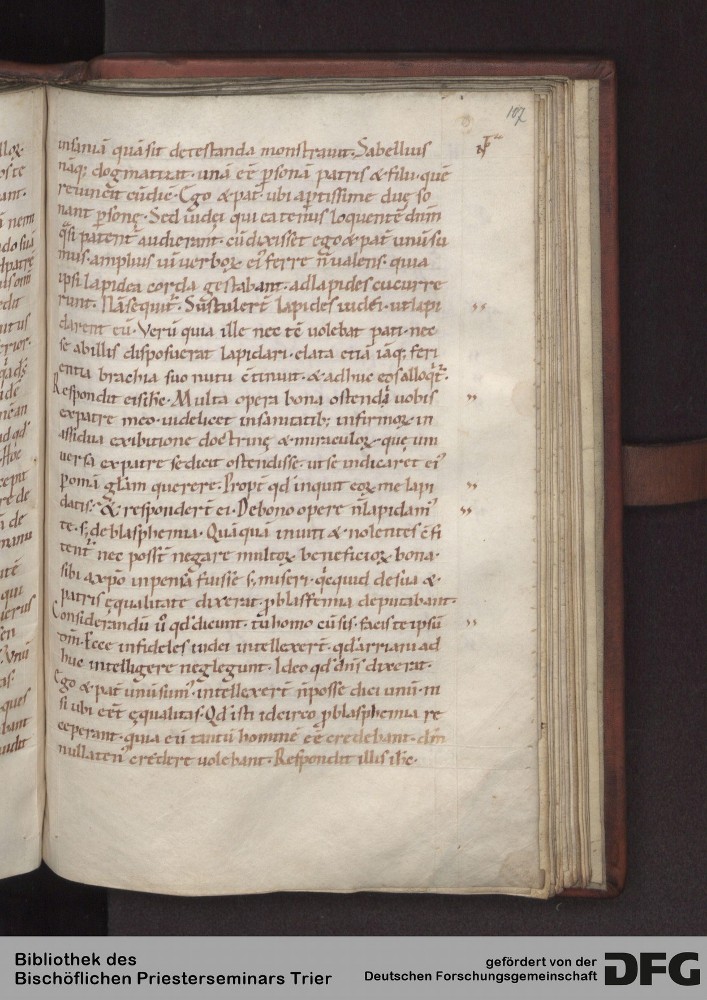 107
insaniā quā sit detestanda monstrauit. Sabellius
nāq; dogmatizat. unā eē psonā patris & filii. quē
reuincit cū dic̄. Ego & pat̄. ubi aptissime duę so
nant psonę. Sed iudei qui eatenus loquentē dn̄m
q̄si patent̄ audierant. cū dixisset ego & pat̄ unū su
mus. amplius ui uerboꝝ ei᾿ ferre n̄ ualens. quia
ipsi lapidea corda gestabant. ad lapides cucurre
runt. Nā sequit̄. Sustulert̄ lapides iudei. ut lapi
darent eū. Verū quia ille nec tē uolebat pati. nec
se ab illis disposuerat lapidari. elata etiā iāq; feri
entia brachia suo nutu c̄tinuit. & adhuc eos alloq̄t̄.
Respondit eis ih̄c. Multa opera bona ostendi uobis
ex patre meo. uidelicet in sanitatib; infirmoꝝ. in
assidua exibitione doctrinę & miraculoꝝ. quę uni
uersa ex patre se dicit ostendisse. ut se indicaret ei᾿
p om̄ia glam querere. Propt̄ qd inquit eoꝝ me lapi
datis. & responder̄t ei. De bono opere n̄ lapidam᾿
te. s; de blasphemia. Quā quā inuiti & nolentes c̄fi
tent̄ nec posst̄ negare multoꝝ beneficioꝝ bona.
sibi a xp̄o inpensa fuisse s; miseri. q̄cquid de sua &
patris ęqualitate dixerat. p blasfemia deputabant.
Considerandū ū qd dicunt. tu homo cū sis. facis te ipsū
dm̄. Ecce infideles iudei intellexer̄t. qd arriani ad
huc intelligere neglegunt. Ideo qd dn̄s dixerat.
Ego & pat̄ unū sum᾿. intellexer̄t n̄ posse dici unū. ni
si ubi eēt ęqualitas. Qd isti idcirco p blasphemia re
ceperant. quia eū tantū hominē eē credebant. dm̄
nullaten᾿ credere uolebant. Respondit illis ih̄c.
Bibliothek des
Bischöflichen Priesterseminars Trier
gefördert von der
Deutschen Forschungsgemeinschaft
DFG